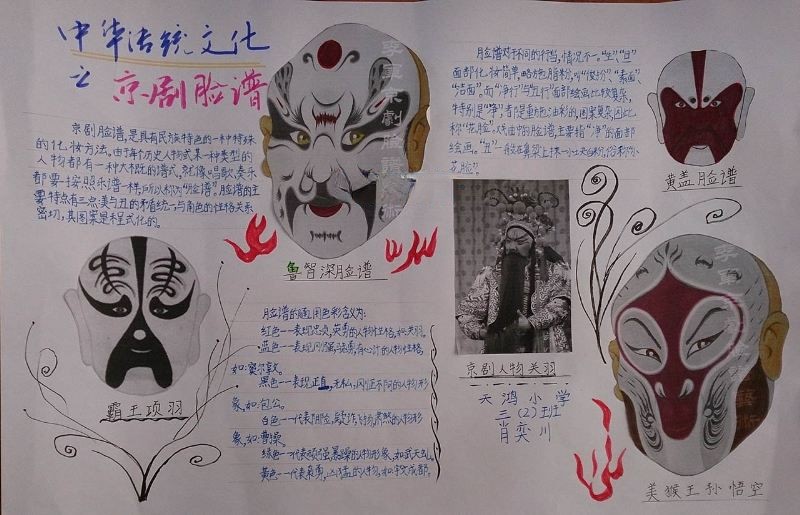 中华传统文化
之
京剧脸谱
京剧脸谱,是具有民族特色的一种特殊
的化妆方法。由于每个历史人物或某一种类型的
人物都有一种大概的谱式,就像唱歌、奏乐
都要按照乐谱一样,所以称为"脸谱"。脸谱的主
要特点有三点:美与丑的矛盾统一;与角色的性格关系
密切;其图案是程式化的。
鲁智深脸谱
脸谱对于不同的行当,情况不一。"生""旦"
面部化妆简单,略施脂粉,叫"俊扮""素面"
"洁面"。而"净行"与"丑行"面部绘画比较复杂,
特别是"净",都是重施油彩的,图案复杂,因此
称"花脸"。戏曲中的脸谱,主要指"净"的面部
绘画。"丑"一般在鼻梁上抹一小块白粉,俗称"小
花脸"。
黄盖脸谱
霸王项羽
红色——表现忠贞、英勇的人物性格,如:关羽。
蓝色——表现刚强、骁勇、有心计的人物性格,
如:窦尔敦。
黑色——表现正直、无私、刚正不阿的人物形
象,如:包公。
象,如:曹操。
京剧人物关羽
天鸿小学
三(2)班
肖奕川
美猴王孙悟空